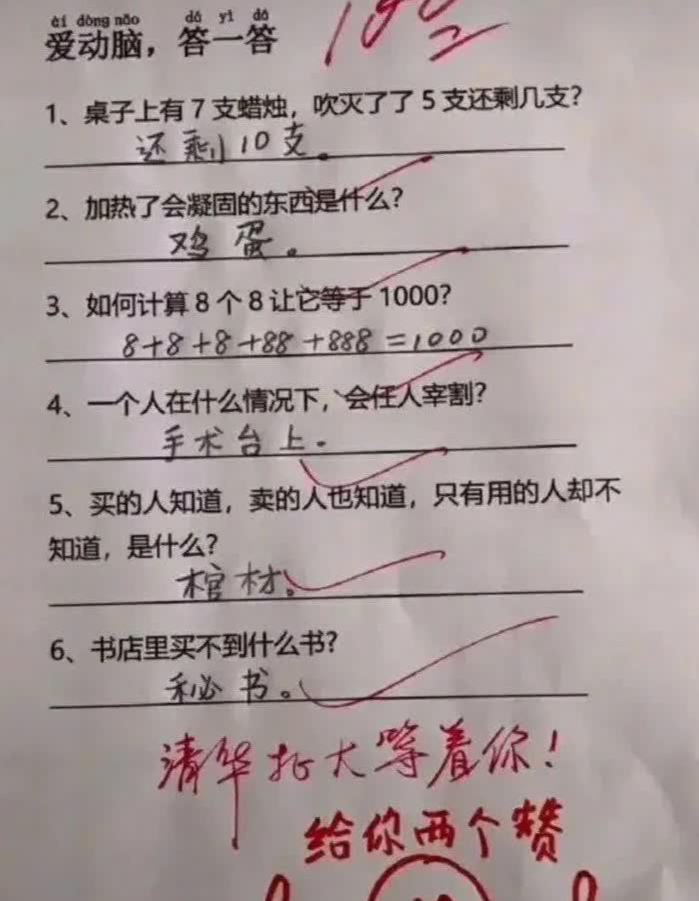 ài dòng nǎo  dá yì dá
爱动脑，答一答
100
1、桌子上有7支蜡烛，吹灭了了5支还剩几支？
还剩10支。
2、加热了会凝固的东西是什么？
鸡蛋。
3、如何计算8个8让它等于1000？
8+8+8+88+888=1000
4、一个人在什么情况下，会任人宰割？
手术台上.
5、买的人知道，卖的人也知道，只有用的人却不
知道，是什么？
棺材。
6、书店里买不到什么书？
秘书。
清华北大等着你！
给你两个赞